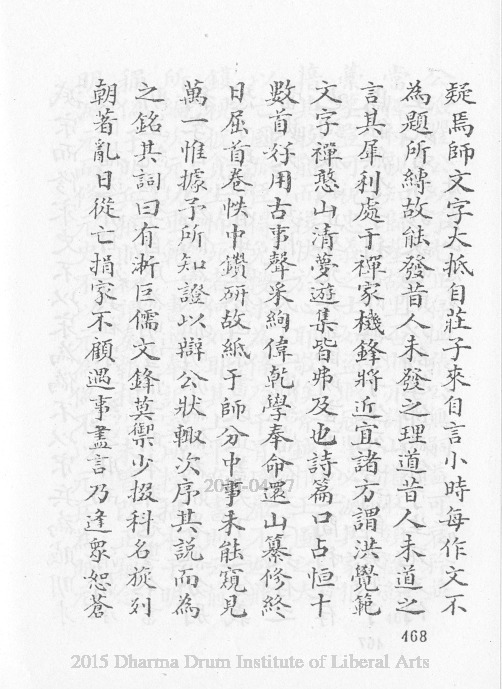 疑焉師文字大抵自莊子來自言小時每作文不
為題所縛故能發昔人未發之理道昔人未道之
言其犀利處于禪家機鋒將近宜諸方謂洪覺範
文字禪憨山清夢遊集皆弗及也詩篇口占恒十
數首好用古事聲采絢偉乾學奉命還山纂修終
日屈首卷帙中鑽研故紙于師分中事未能窺見
萬一惟據予所知證以辯公狀輙次序其說而為
之銘其詞曰有浙巨儒文鋒莫禦少掇科名旋列
朝著亂日從亡捐家不顧遇事盡言乃逢眾怒蒼
468
2015 Dharma Drum Institute of Liberal Arts